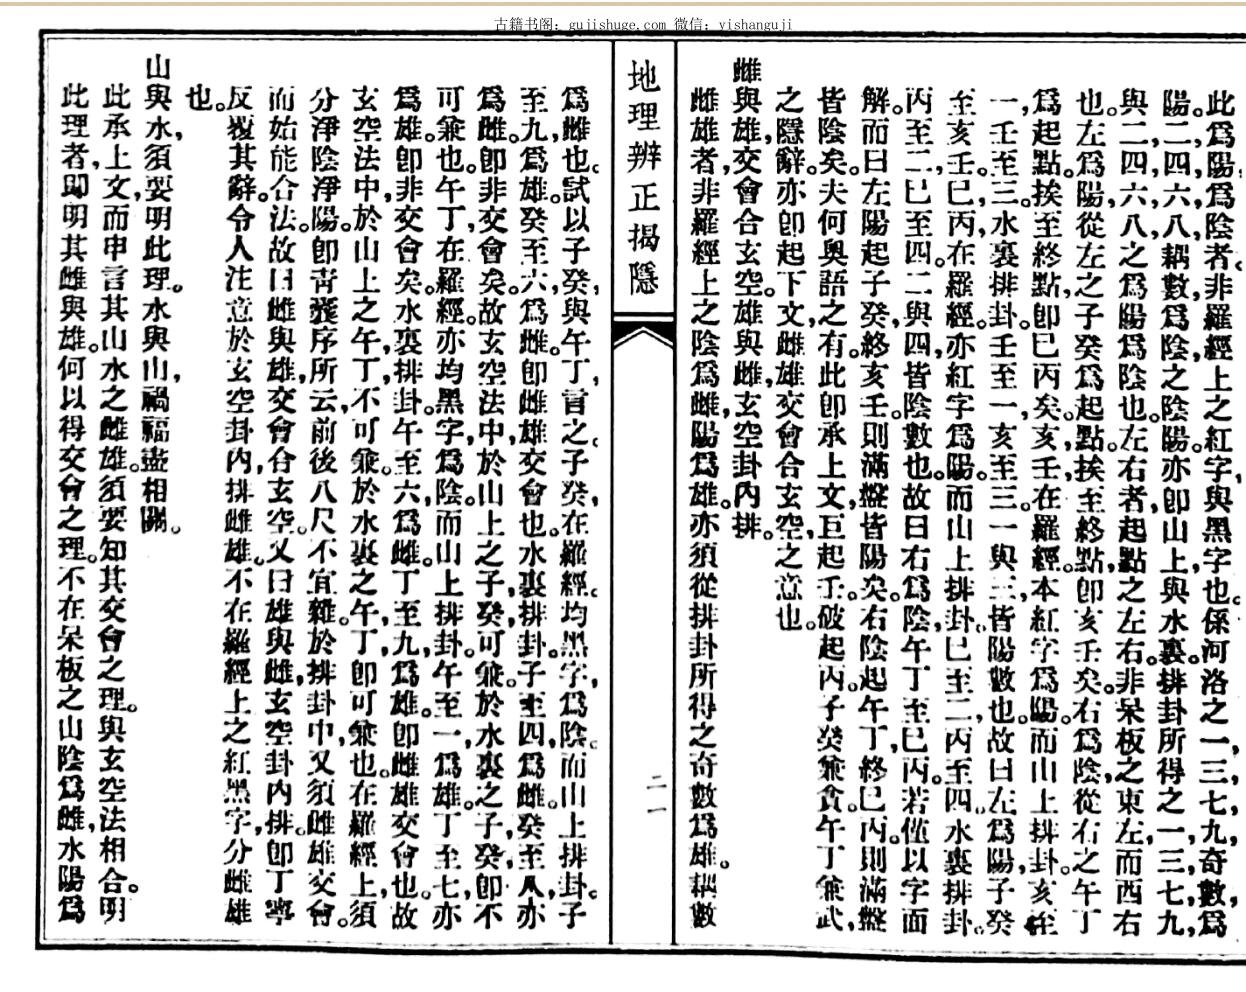 古籍书阁：gujishuge.com 微信：yishanguji
此爲陽，爲陰者。非羅經上之紅字，與黑字也。係河洛之一，三七九奇數，爲
陽。二，四，六，八，耦數，爲陰，之陰陽。亦卽山上，與水裏，排卦所得之一，三，七，九，
與二四六八之爲陽爲陰也。左右者，起點之左右。非呆板之東左，而西右
也。左爲陽，從左之子癸爲起點。挨至終點，卽亥壬矣。右爲陰，從右之午丁
爲起點。挨至終點，卽巳丙矣。亥壬，在羅經。本紅字爲陽。而山上排卦。亥至
一，壬至三。水裏排卦。壬至一，亥至三。一與三，皆陽數也。故曰左爲陽，子癸
至亥壬。巳丙，在羅經。亦紅字爲陽。而山上排卦，巳至二，丙至四。水裏排卦。
丙至二，巳至四。二與四，皆陰數也。故曰右爲陰，午丁至巳丙。若僅以字面
解。而曰左陽起子癸，終亥壬，則滿盤皆陽矣。右陰起午丁，終巳丙，則滿盤
皆陰矣。夫何奧語之有。此卽承上文，巨起壬。破起丙。子癸兼貪。午丁兼武，
之隱辭。亦卽起下文，雌雄交會合玄空，之意也。
雌與雄，交會合玄空。雄與雌，玄空卦內排。
雌雄者，非羅經上之陰爲雌，陽爲雄。亦須從排卦所得之奇數爲雄。耦數
地理辨正揭隱
二一
爲雌也。試以子癸，與午丁，言之。子癸，在羅經。均黑字，爲陰。而山上排卦。子
至九，爲雄。癸至六，爲雌。卽雌雄交會也。水裏排卦。子至四，爲雌。癸至八，亦
爲雌。卽非交會矣。故玄空法中，於山上之子癸，可兼。於水裏之子癸，卽不
可兼也。午丁，在羅經。亦均黑字，爲陰。而山上排卦。午至一，爲雄。丁至七，亦
爲雄。卽非交會矣。水裏排卦。午至六，爲雌。丁至九，爲雄。卽雌雄交會也。故
玄空法中，於山上之午丁，不可兼。於水裏之午丁，卽可兼也。在羅經上，須
分淨陰淨陽。卽靑囊序所云，前後八尺不宜雜。於排卦中，又須雌雄交會。
而始能合法。故曰雌與雄，交會合玄空。又曰雄與雌，玄空卦內排。卽丁寧
反覆其辭。令人注意於玄空卦內，排雌雄。不在羅經上之紅黑字，分雌雄
也。
山與水，須要明此理。水與山，禍福盡相關。
此承上文，而申言其山水之雌雄。須要知其交會之理。與玄空法相合。明
此理者，卽明其雌與雄。何以得交會之理。不在呆板之山陰爲雌，水陽爲